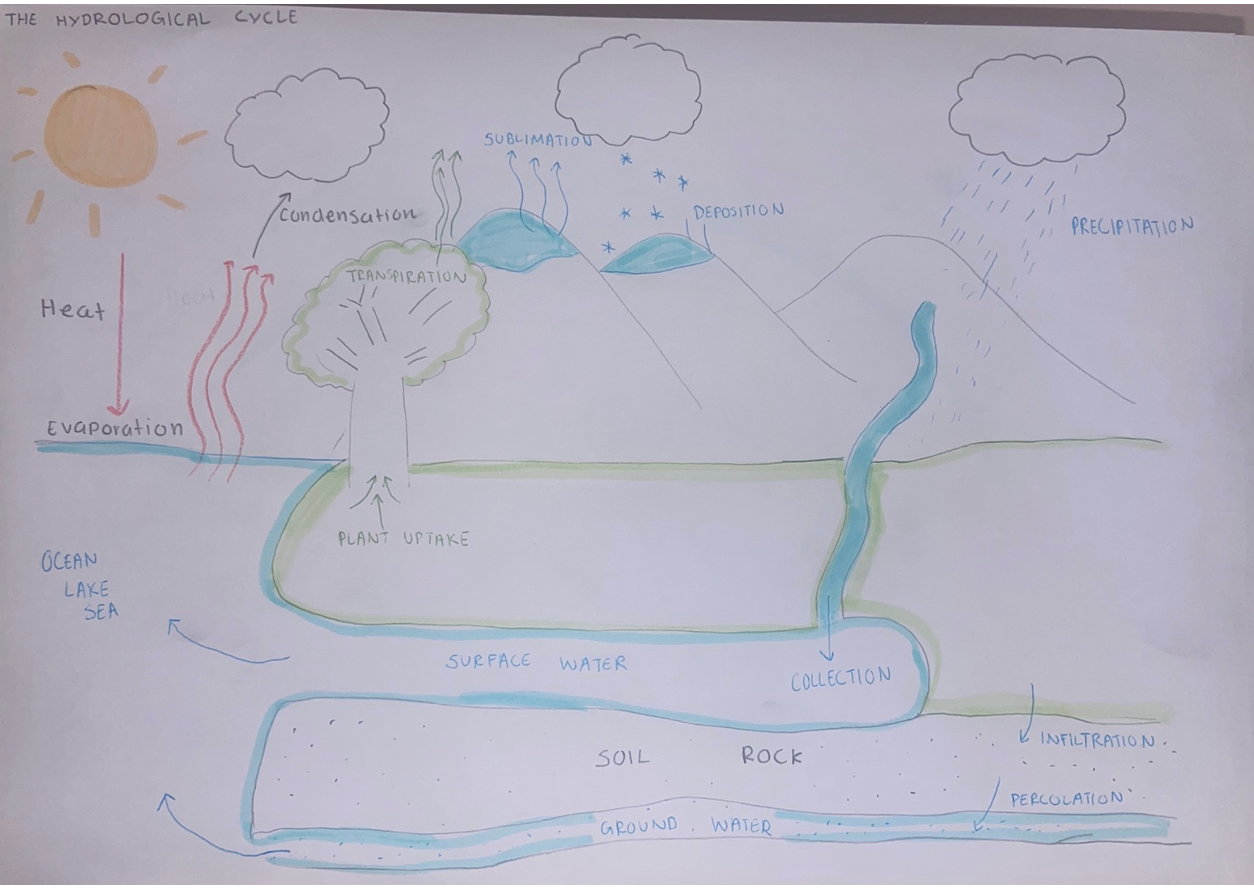 THE HYDROLOGICAL CYCLE
SUBLIMATION
Condensation
DEPOSITION
PRECIPITATION
TRANSPIRATION
Heat
Heat
Evaporation
PLANT UPTAKE
OCEAN
LAKE
SEA
SURFACE WATER
COLLECTION
SOIL ROCK
INFILTRATION
PERCOLATION
GROUND WATER